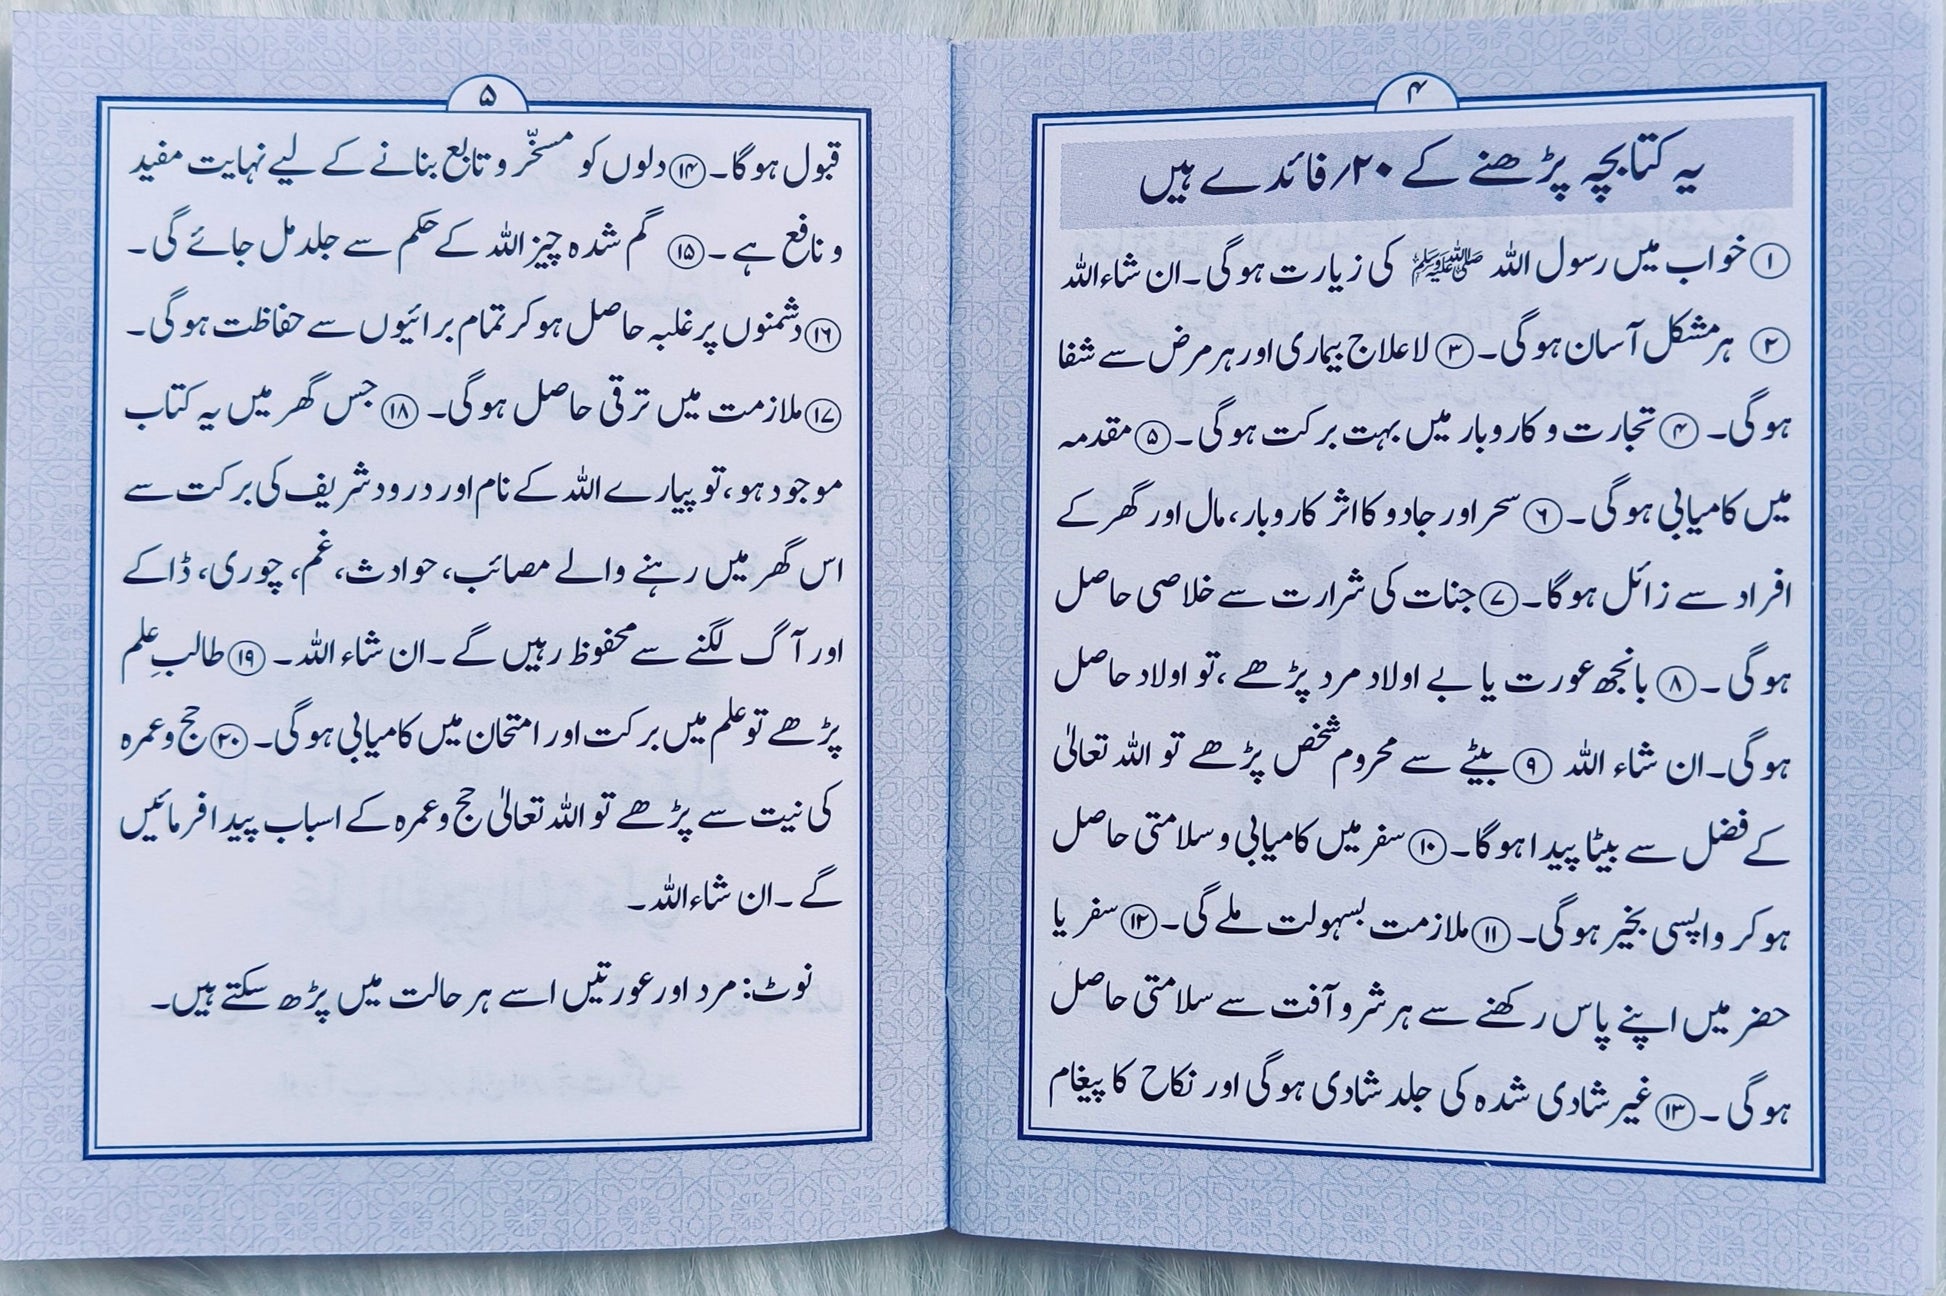 ۴
یہ کتابچہ پڑھنے کے ۲۰؍فائدے ہیں
①خواب میں رسول اللہ ﷺ کی زیارت ہوگی۔ان شاءاللہ
② ہرمشکل آسان ہوگی۔③لاعلاج بیماری اور ہر مرض سے شفا
ہوگی۔ ④تجارت و کاروبار میں بہت برکت ہوگی۔⑤مقدمہ
میں کامیابی ہوگی۔⑥سحر اور جادو کا اثر کاروبار، مال اور گھر کے
افراد سے زائل ہوگا۔⑦جنات کی شرارت سے خلاصی حاصل
ہوگی۔⑧بانجھ عورت یا بے اولاد مرد پڑھے، تو اولاد حاصل
ہوگی۔ان شاء اللہ ⑨بیٹے سے محروم شخص پڑھے تو اللہ تعالیٰ
کے فضل سے بیٹا پیدا ہوگا۔⑩سفر میں کامیابی و سلامتی حاصل
ہوکر واپسی بخیر ہوگی۔⑪ملازمت بسہولت ملے گی۔⑫سفر یا
حضر میں اپنے پاس رکھنے سے ہر شر و آفت سے سلامتی حاصل
ہوگی۔⑬غیر شادی شدہ کی جلد شادی ہوگی اور نکاح کا پیغام
۵
قبول ہوگا۔⑭دلوں کو مسخّر و تابع بنانے کے لیے نہایت مفید
و نافع ہے۔⑮ گم شدہ چیز اللہ کے حکم سے جلد مل جائے گی۔
⑯دشمنوں پر غلبہ حاصل ہوکر تمام برائیوں سے حفاظت ہوگی۔
⑰ملازمت میں ترقی حاصل ہوگی۔ ⑱جس گھر میں یہ کتاب
موجود ہو، تو پیارے اللہ کے نام اور درود شریف کی برکت سے
اس گھر میں رہنے والے مصائب، حوادث، غم، چوری، ڈاکے
اور آگ لگنے سے محفوظ رہیں گے۔ان شاء اللہ۔ ⑲طالبِ علم
پڑھے تو علم میں برکت اور امتحان میں کامیابی ہوگی۔⑳حج و عمرہ
کی نیت سے پڑھے تو اللہ تعالیٰ حج و عمرہ کے اسباب پیدا فرمائیں
گے۔ان شاءاللہ۔
نوٹ: مرد اور عورتیں اسے ہر حالت میں پڑھ سکتے ہیں۔